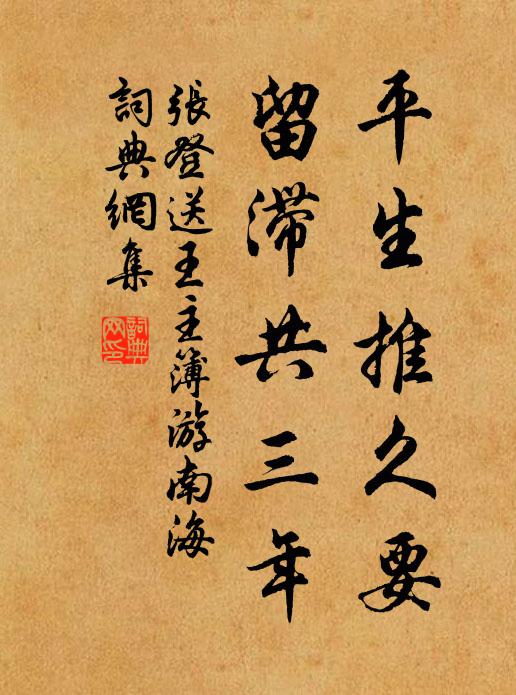 平生推久要
留滞共三年
張登送王主簿游南海
詞典網集
詞典網印